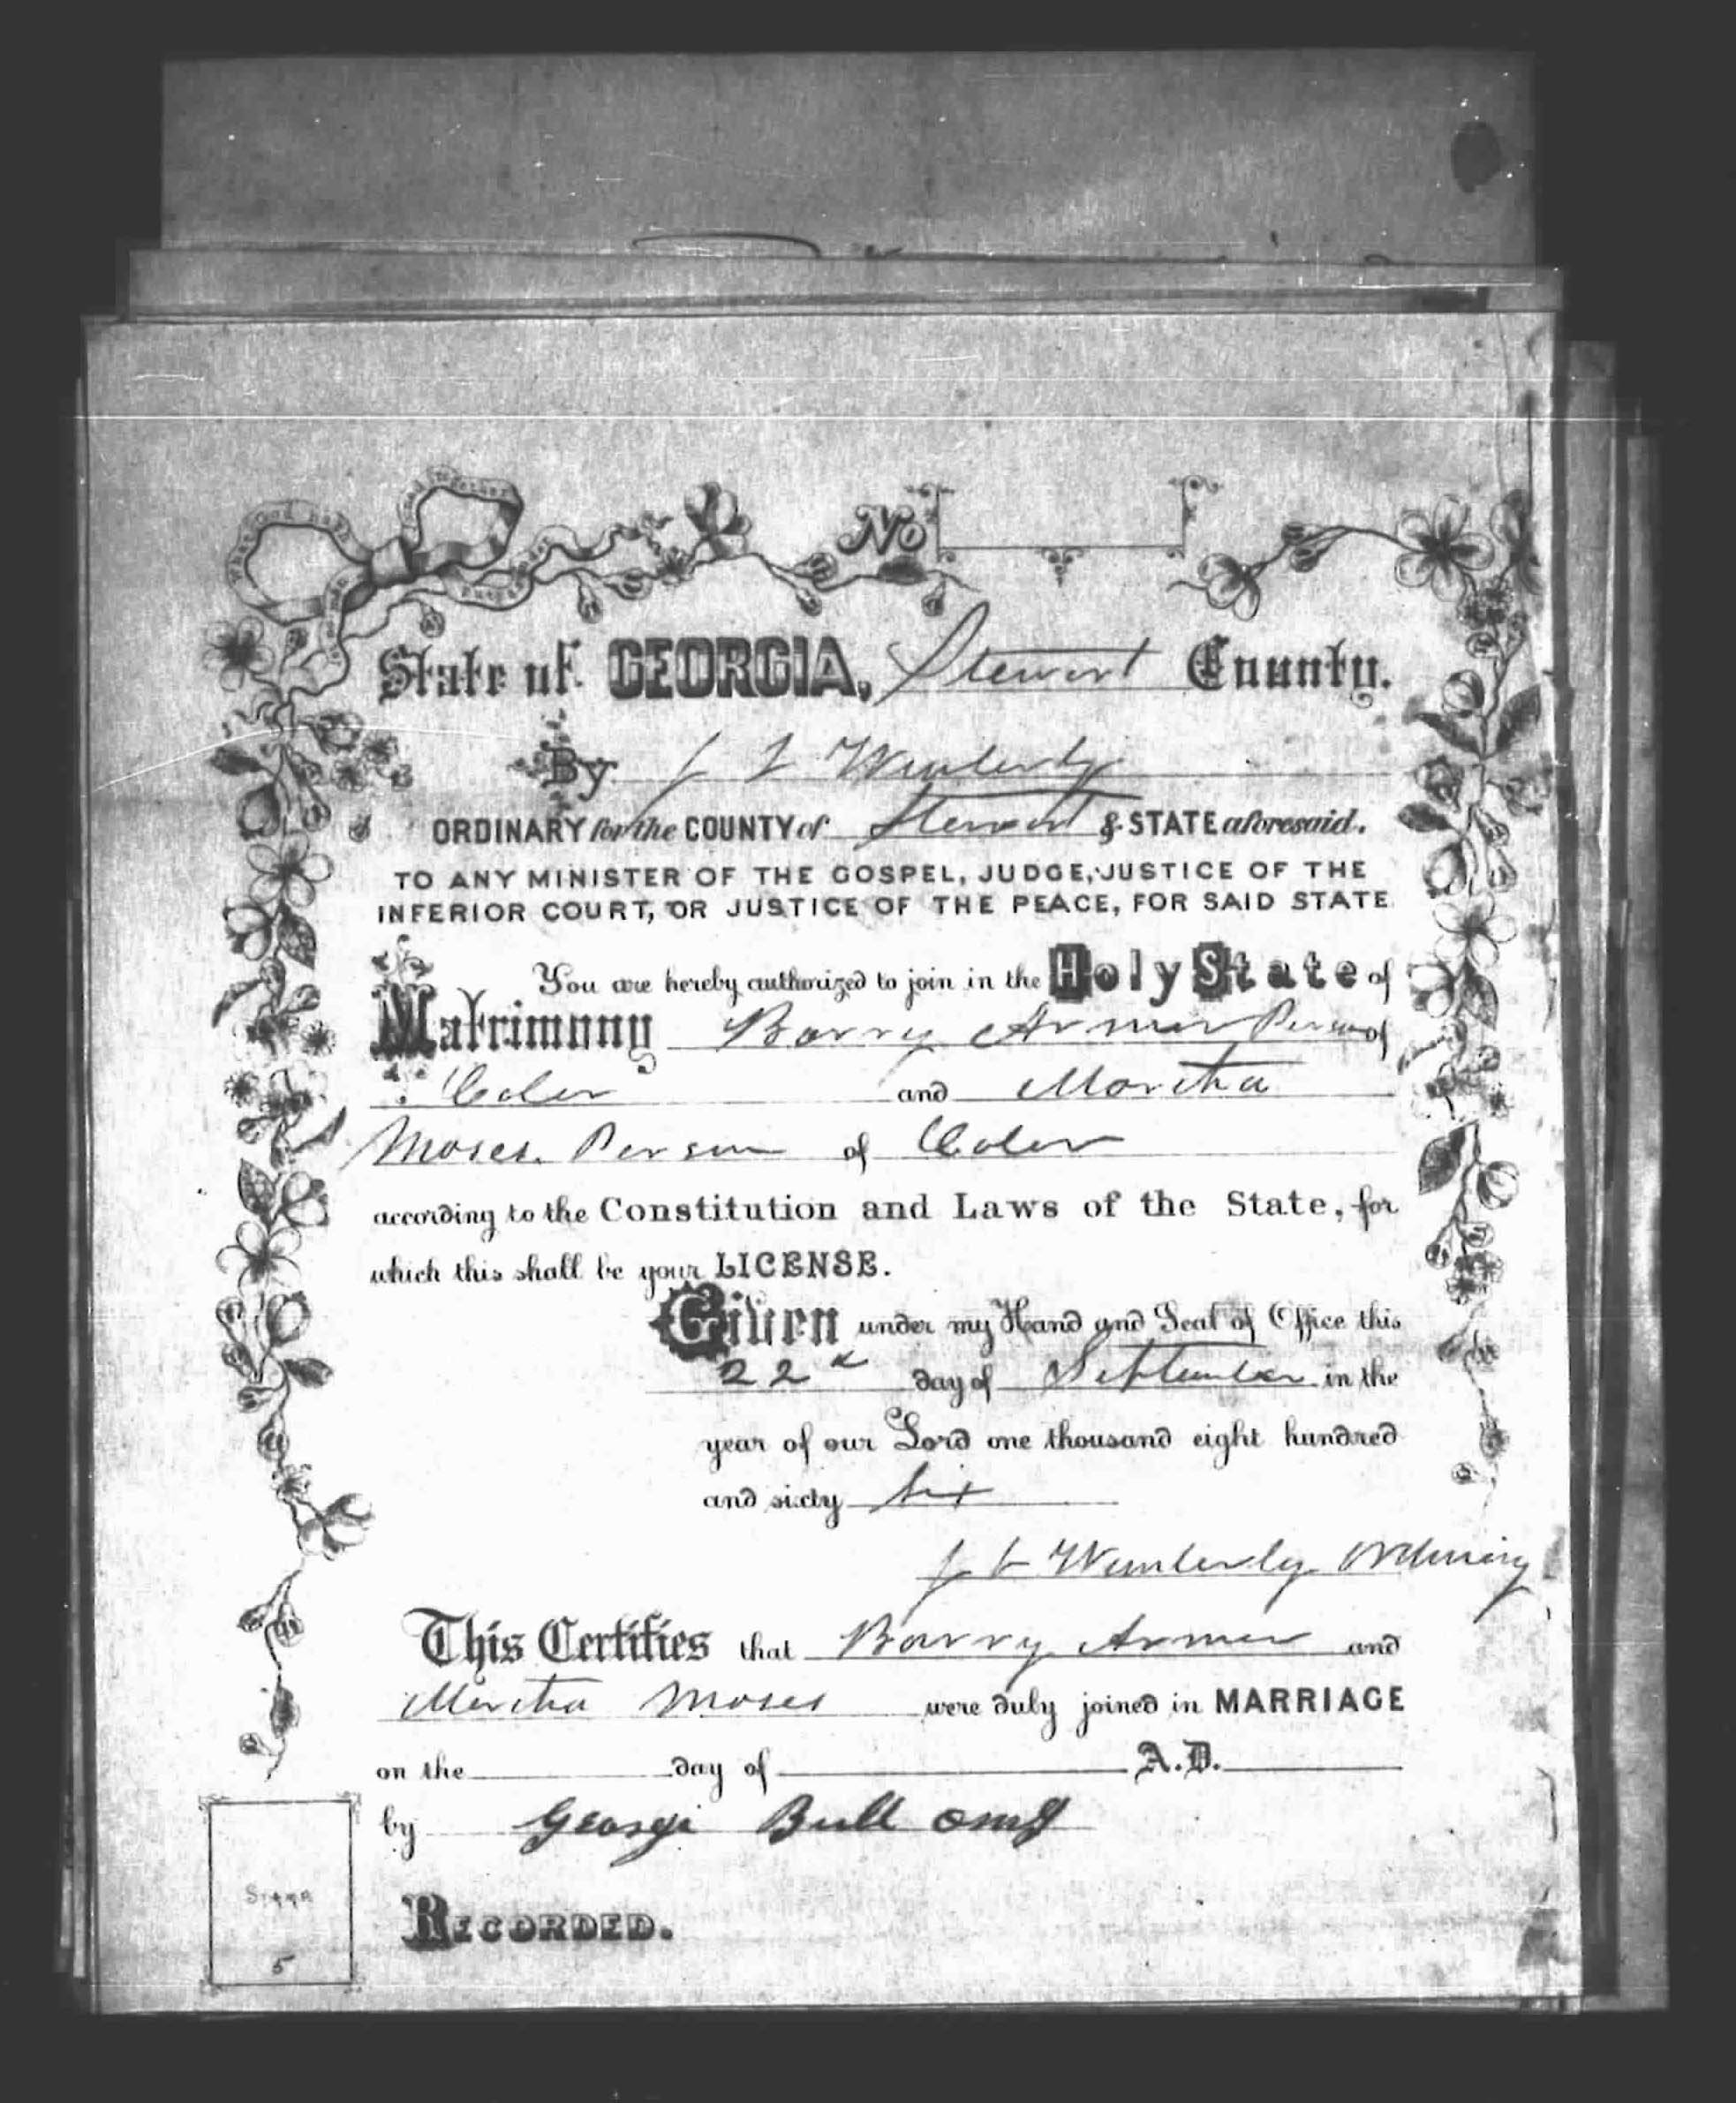 What God hath joined together let no man put asunder
No
State of GEORGIA, Stewart County.
By J L Wimberly
ORDINARY for the COUNTY of Stewart & STATE aforesaid.
TO ANY MINISTER OF THE GOSPEL, JUDGE, JUSTICE OF THE
INFERIOR COURT, OR JUSTICE OF THE PEACE, FOR SAID STATE
You are hereby authorized to join in the Holy State of
Matrimony Barry Armer Person of
Coler and Martha
Moses Person of Coler
according to the Constitution and Laws of the State, for
which this shall be your LICENSE.
Given under my Hand and Seal of Office this
22d day of September in the
year of our Lord one thousand eight hundred
and sixty six
J L Wimberly Ordinary
This Certifies that Barry Armer and
Martha Moses were duly joined in MARRIAGE
on the day of A.D.
by George Bull
RECORDED.
5